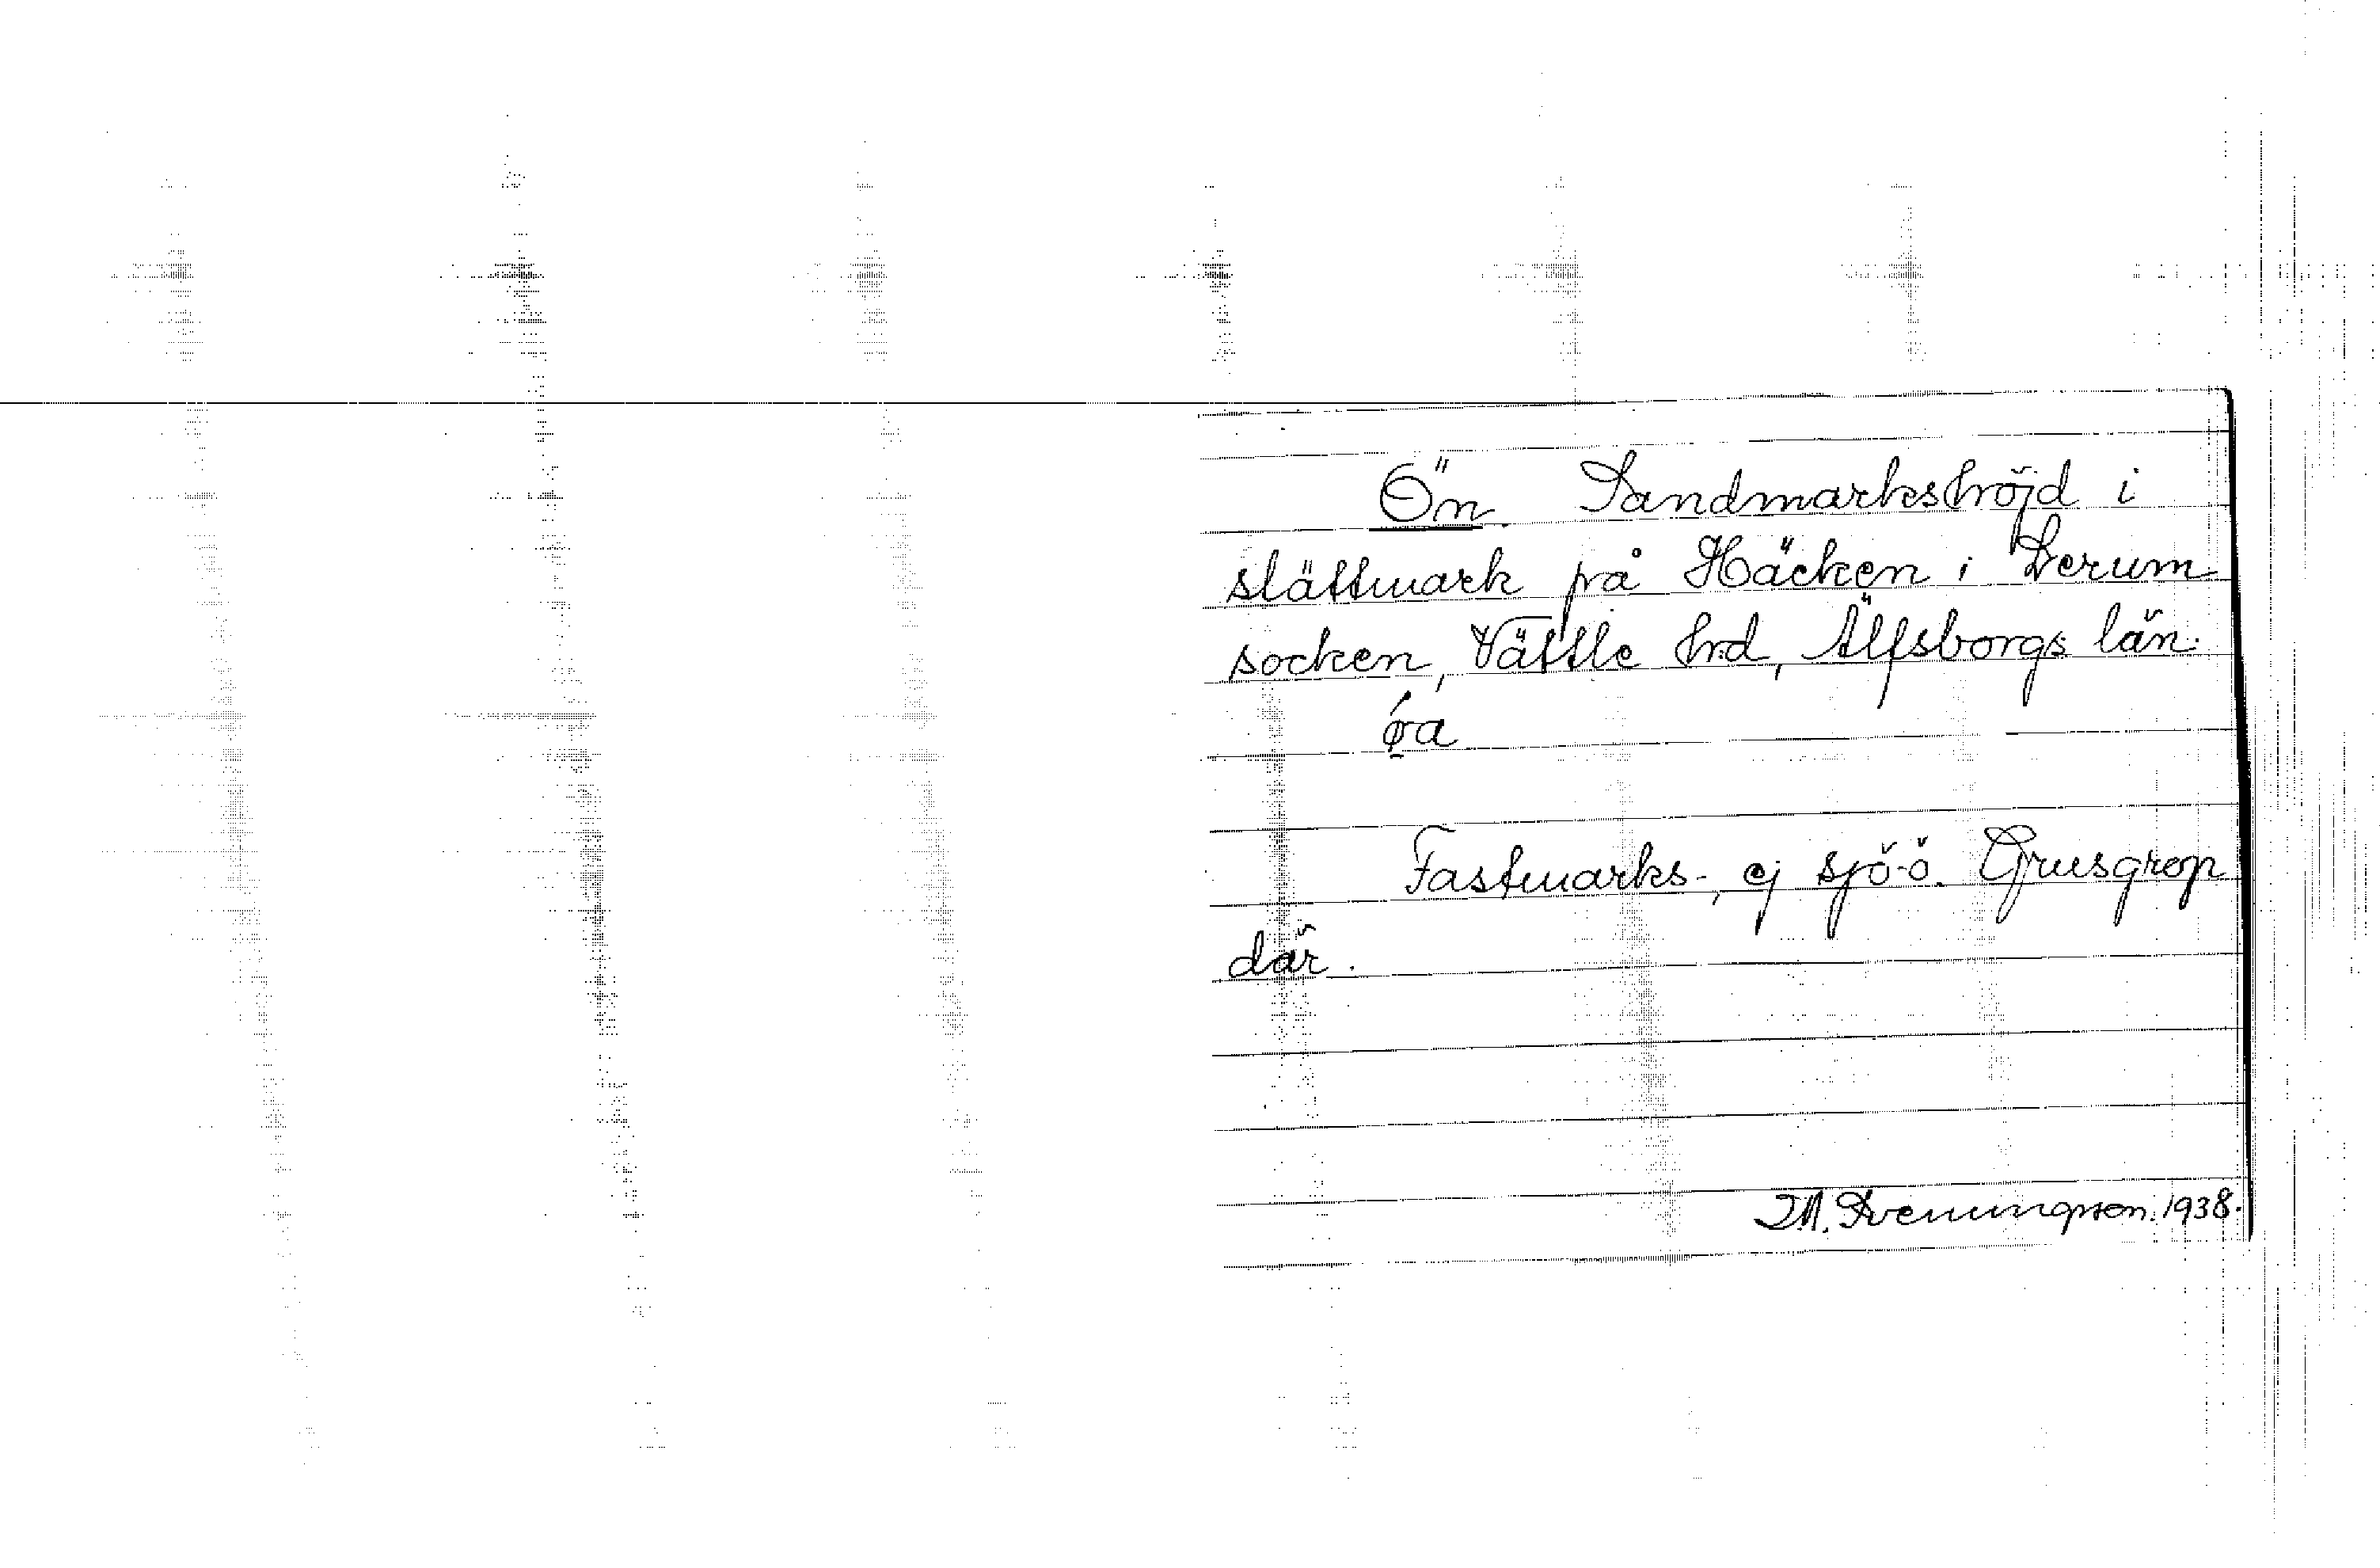 Ön. Sandmarkshöjd i
slättmark på Häcken i Lerum
socken, Vättle hrd, Älfsborgs län.
ǿa
Fastmarks-, ej sjö-ö. Grusgrop
där.
I.M. Svenungsson. 1938.